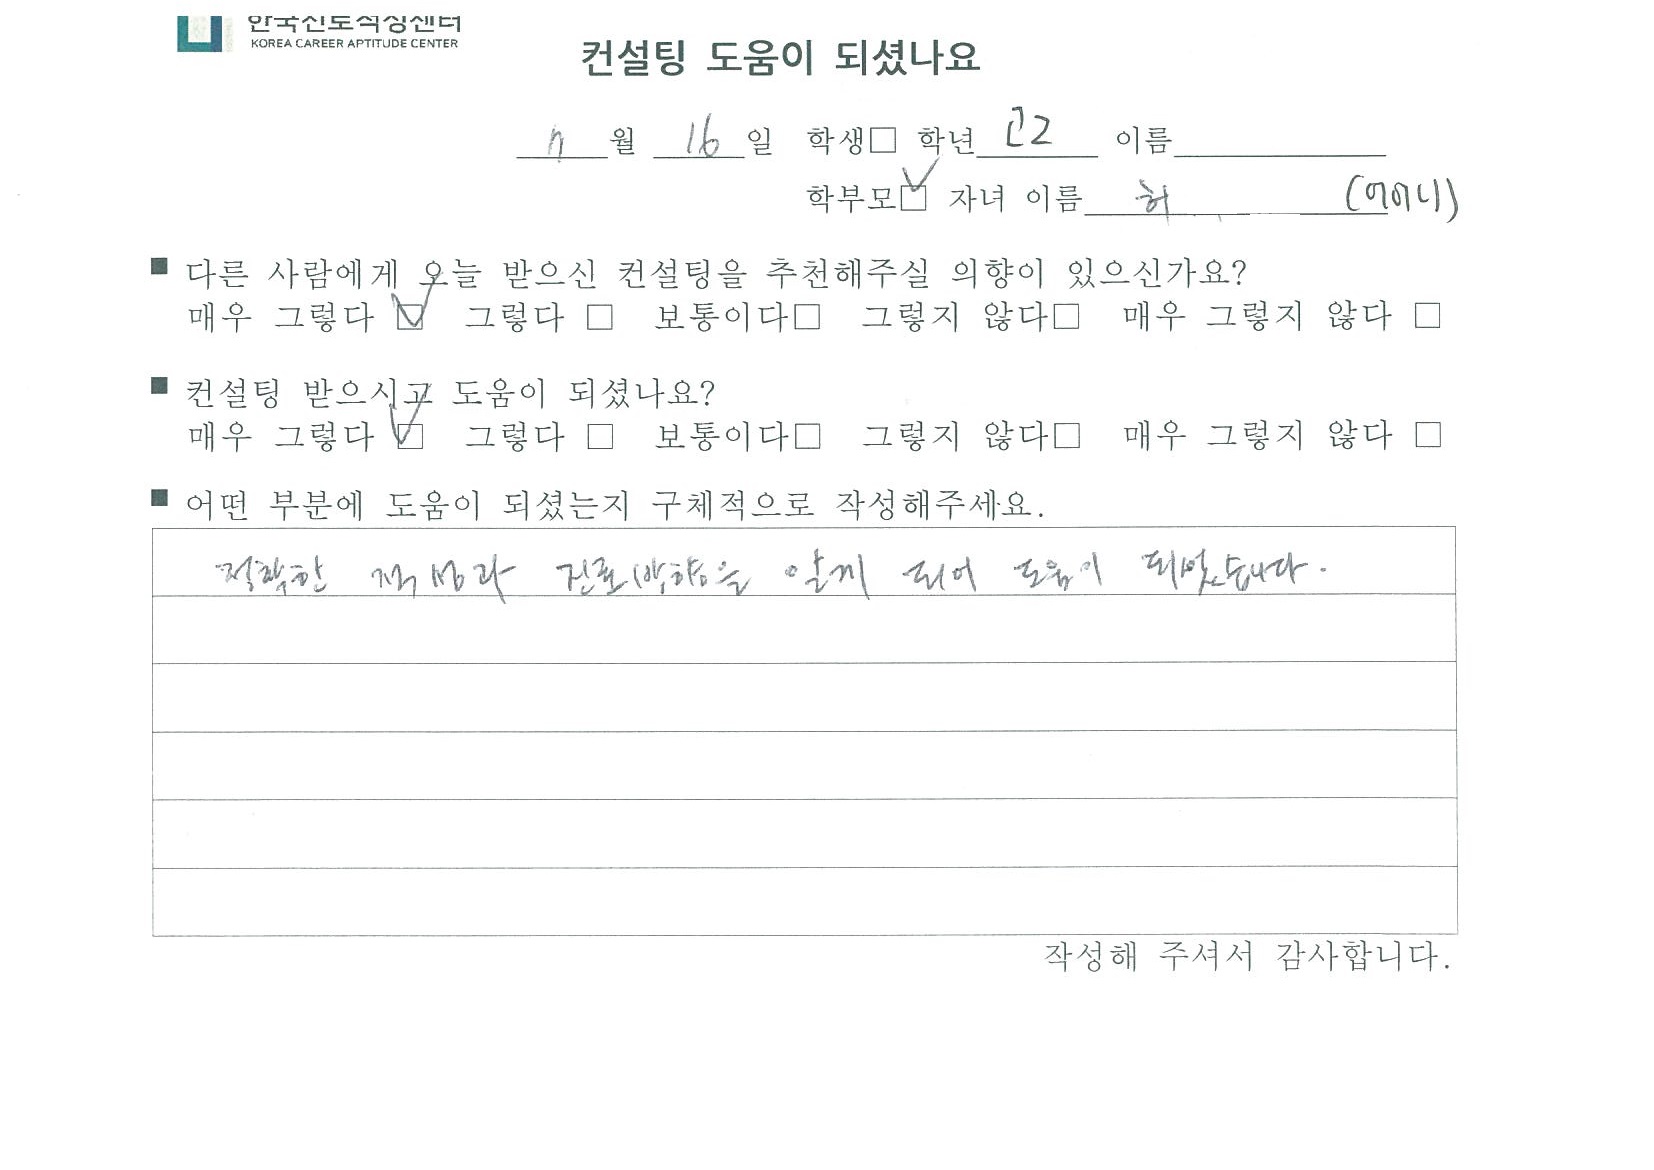 한국진로적성센터
KOREA CAREER APTITUDE CENTER
컨설팅 도움이 되셨나요
7 월 16 일 학생□ 학년 고2 이름
학부모☑ 자녀 이름 허 (어머니)
■ 다른 사람에게 오늘 받으신 컨설팅을 추천해주실 의향이 있으신가요?
매우 그렇다 ☑ 그렇다 □ 보통이다□ 그렇지 않다□ 매우 그렇지 않다 □
■ 컨설팅 받으시고 도움이 되셨나요?
매우 그렇다 ☑ 그렇다 □ 보통이다□ 그렇지 않다□ 매우 그렇지 않다 □
■ 어떤 부분에 도움이 되셨는지 구체적으로 작성해주세요.
정확한 적성과 진로방향을 알게 되어 도움이 되었습니다.
작성해 주셔서 감사합니다.